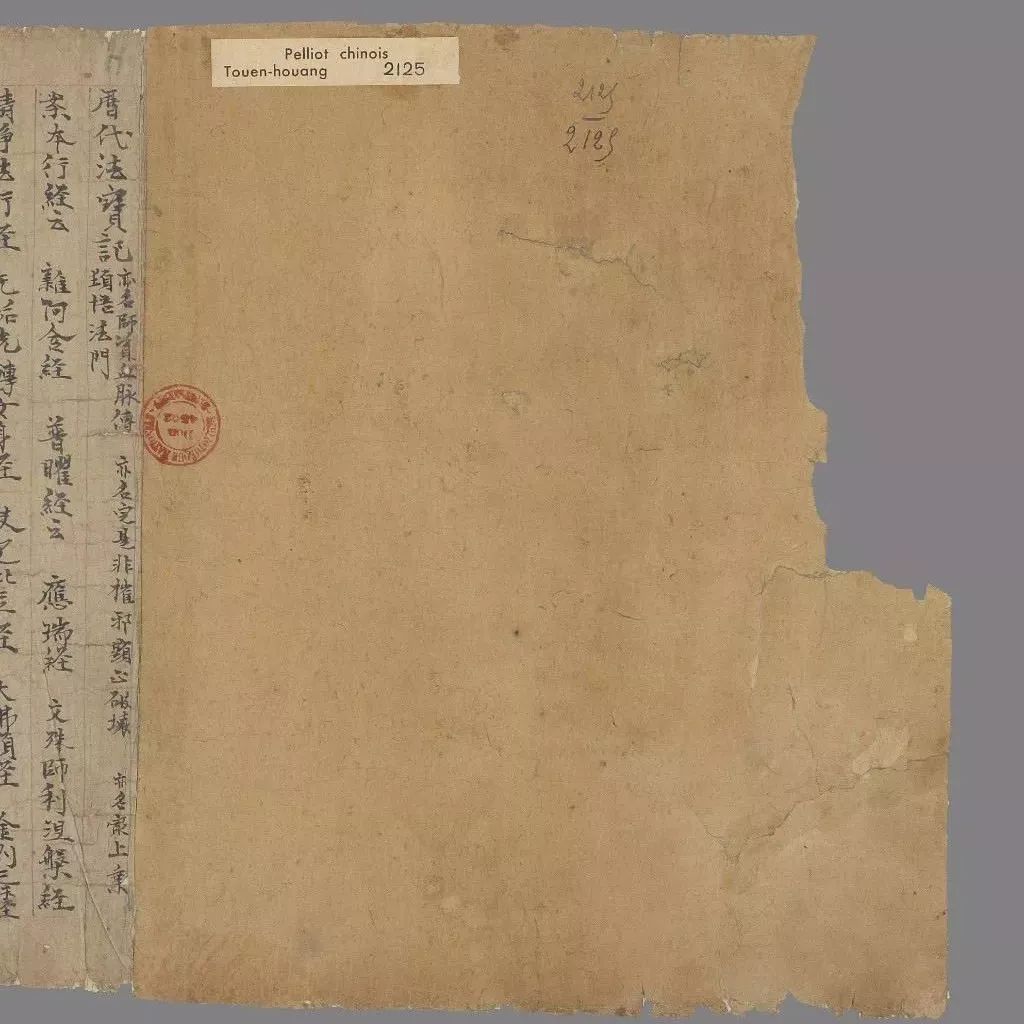 Pelliot chinois
Touen-houang 2125
2125
2125
曆代法寶記
亦名師資血脉傳 亦名定是非摧邪顯正破壞 亦名最上乘
頓悟法門
案本行經云 雜阿含經 普曜經云 應瑞經 文殊師利涅槃經
清淨法行經 无垢光轉女身經 決定毗尼經 大佛頂經 金剛三昧經